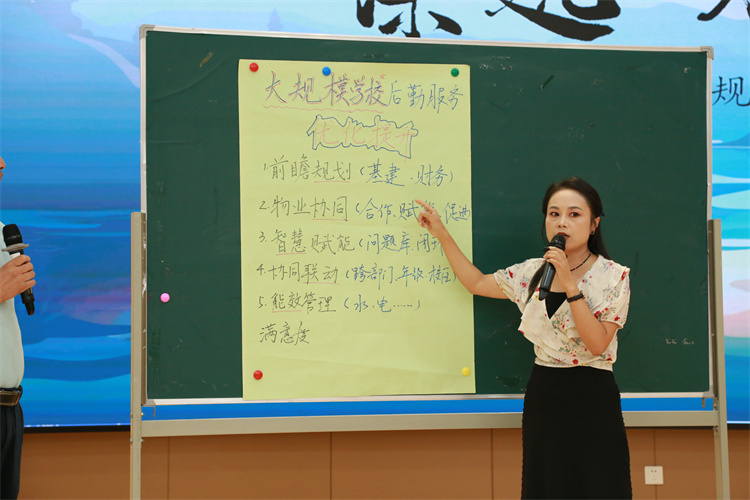 大规模学校后勤服务
优化提升
1.前瞻规划(基建、财务)
2.物业协同(合作、赋能、促进
3.智慧赋能(问题库、闭环
4.协同联动(跨部门、年级、校区)
5.能效管理(水、电……)
满意度
规